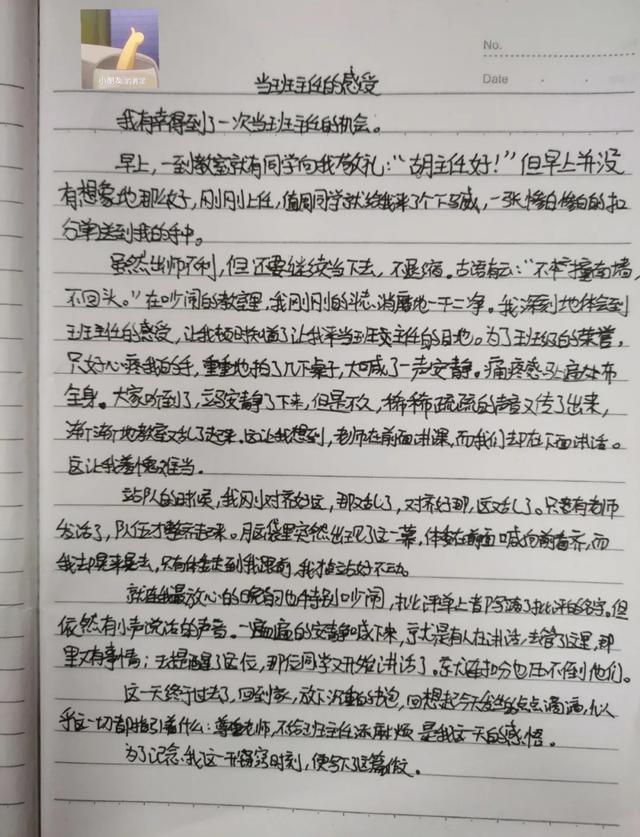 小朋友
No.
Date
当班主任的感受
我有幸得到了一次当班主任的机会。
早上,一到教室就有同学向我敬礼:“胡主任好!”但早上并没
有想象地那么好,刚刚上任,值周同学就给我来了个下马威,一张惨白惨白的扣
分单送到我的手中。
虽然出师不利,但还要继续当下去,不退缩。古语有云:“不撞南墙,
不回头。”在吵闹的教室里,我刚刚的斗志消磨地一干二净。我深刻地体会到
班主任的感受,让我顿时知道了让我来当班主任的目地。为了班级的荣誉,
只好心疼我的手,重重地拍了几下桌子,大喊了一声安静。痛疼感马上遍布
全身。大家听到了,立马安静了下来,但是不久,稀稀疏疏的声音又传了出来,
渐渐地教室又乱了起来。这让我想到,老师在前面讲课,而我们却在下面讲话。
这让我羞愧难当。
站队的时候,我刚对齐好这,那又乱了,对齐好那,这又乱了。只有老师
发话了,队伍才整齐起来。脑袋里突然出现了这一幕,体委在前面喊向前看齐,而
我却晃来晃去,只有体委走到我跟前,我才站好不动。
就连我最放心的晚自习也特别吵闹,批评单上都写满了批评的名字。但
依然有小声说话的声音。一遍遍的安静喊下来,总是有人在讲话,去管了这里,那
里又有事情;去提醒了这位,那位同学又开始讲话了。扣分也压不倒他们。
这一天终于过去了,回到家,放下沉重的书包,回想起今天发生的点点滴滴,似
乎这一切都指引着什么:尊重老师,不给班主任添麻烦 是我这一天的感悟。
为了记念我这一天 时刻,便写下这篇作文。